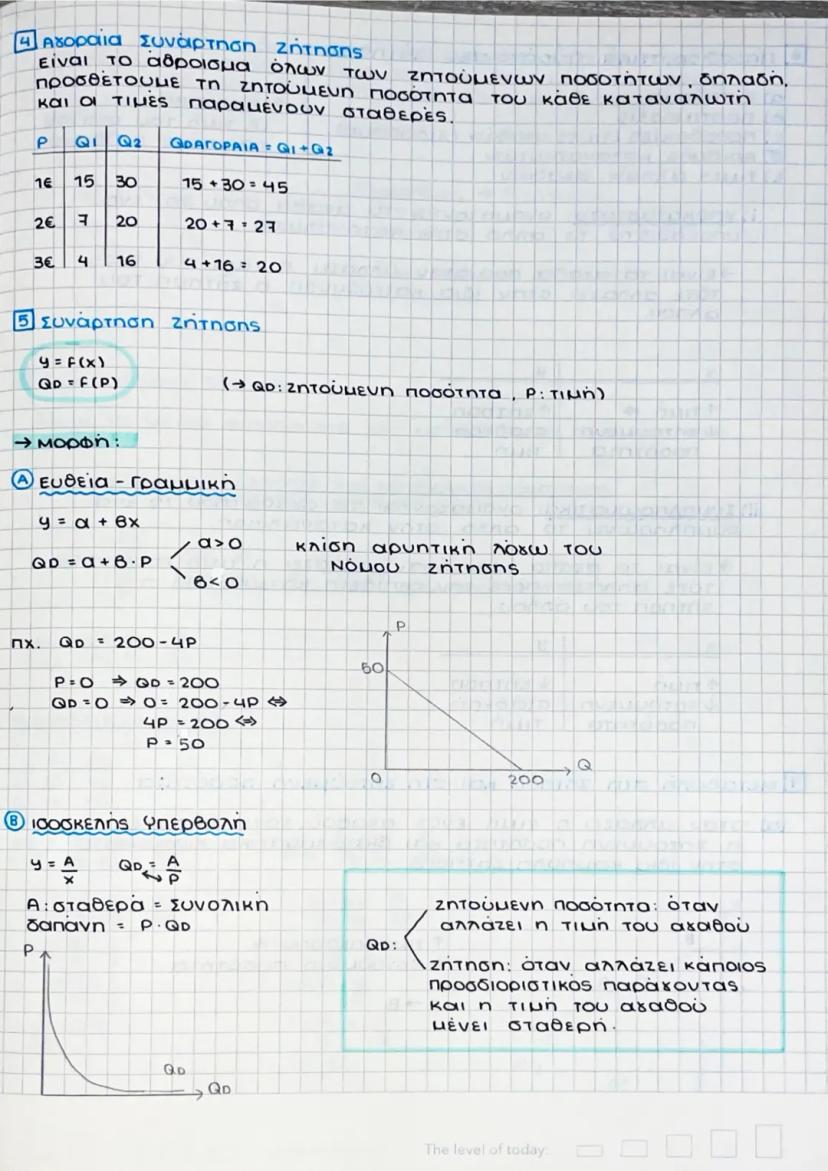 4 Αγοραία Συνάρτηση Ζήτησης
Είναι το άθροισμα όλων των ζητούμενων ποσοτήτων, δηλαδή,
προσθέτουμε τη ζητούμενη ποσότητα του κάθε καταναλωτή
και οι τιμές παραμένουν σταθερές.
P Q1 Q2 QDΑΓΟΡΑΙΑ = Q1 + Q2
1€ 15 30 15 + 30 = 45
2€ 7 20 20 + 7 = 27
3€ 4 16 4 + 16 = 20
5 Συνάρτηση Ζήτησης
y = f(x)
QD = f(P) (→ QD: ζητούμενη ποσότητα, P: τιμή)
→ Μορφή:
Α Ευθεία - Γραμμική
y = α + βx
QD = α + β · P
α > 0
β < 0
κλίση αρνητική λόγω του
Νόμου Ζήτησης
πχ. QD = 200 - 4P
P = 0 ⇒ QD = 200
QD = 0 ⇒ 0 = 200 - 4P ⇔
4P = 200 ⇔
P = 50
P
50
0 200 Q
Β Ισοσκελής Υπερβολή
y = A/x QD = A/P
Α: σταθερά = συνολική
δαπάνη = P · QD
P
QD
QD
QD:
ζητούμενη ποσότητα: όταν
αλλάζει η τιμή του αγαθού
ζήτηση: όταν αλλάζει κάποιος
προσδιοριστικός παράγοντας
και η τιμή του αγαθού
μένει σταθερή.
The level of today: